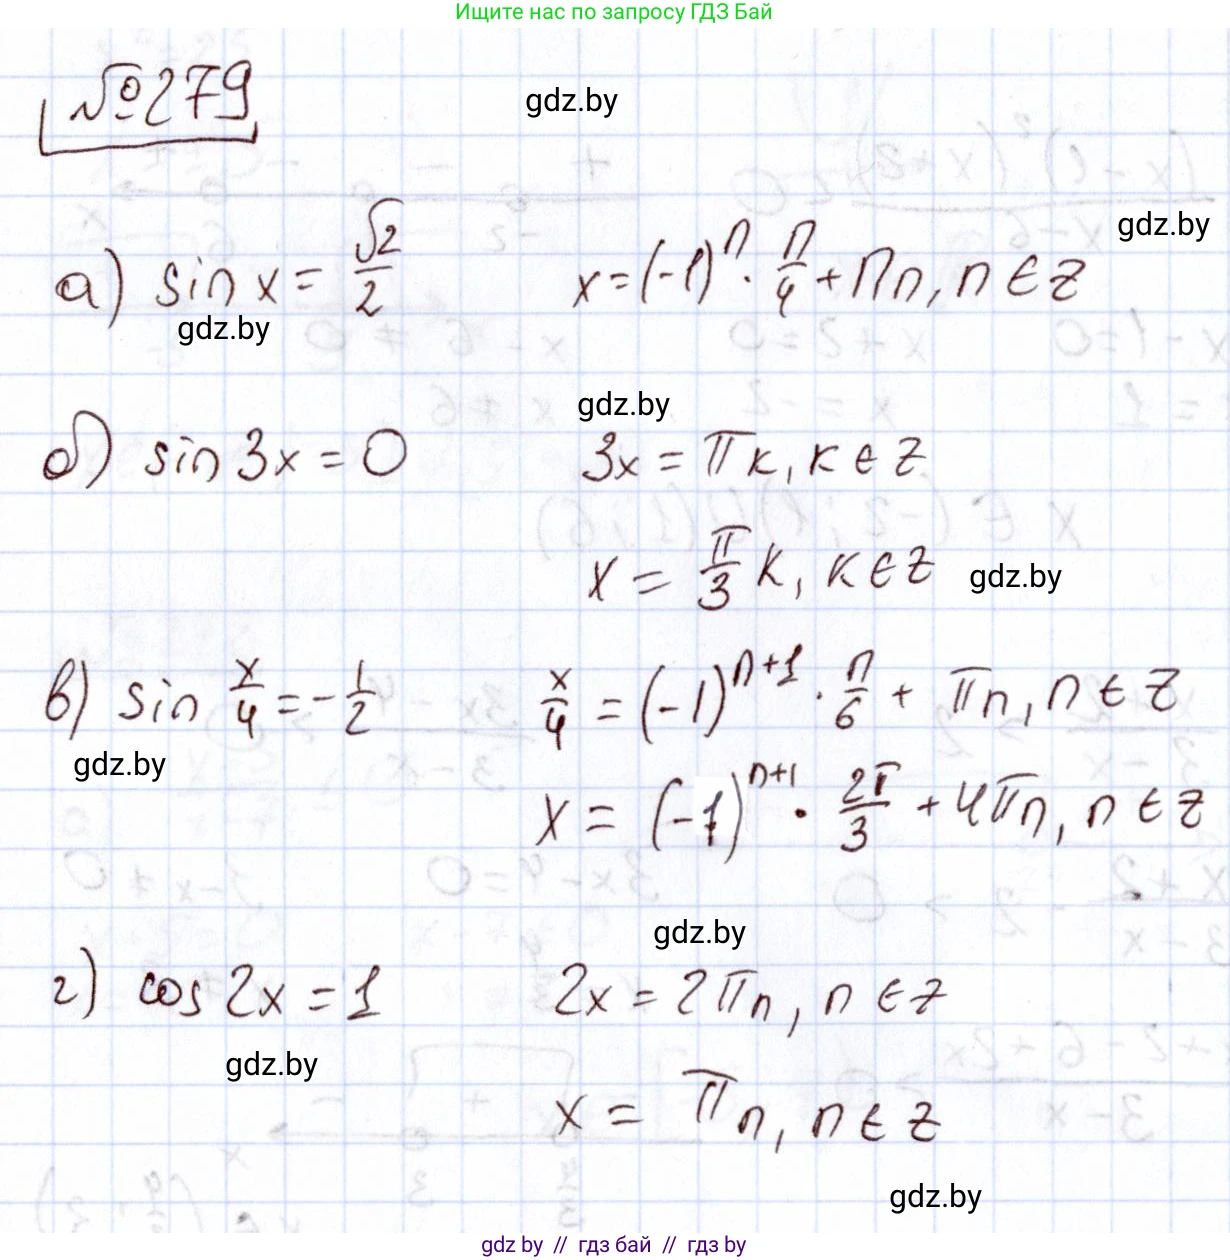 Ищите нас по запросу ГДЗ Бай
№279
gdz.by
gdz.by
а) sin x = √2/2 x = (-1)^n · π/4 + πn, n ∈ Z
gdz.by
gdz.by
б) sin 3x = 0 3x = πк, к ∈ Z
x = π/3 к, к ∈ Z gdz.by
в) sin x/4 = -1/2 x/4 = (-1)^(n+1) · π/6 + πn, n ∈ Z
gdz.by
x = (-1)^(n+1) · 2π/3 + 4πn, n ∈ Z
gdz.by
г) cos 2x = 1 2x = 2πn, n ∈ Z
gdz.by
x = πn, n ∈ Z
gdz.by
gdz by // гдз бай // гдз by